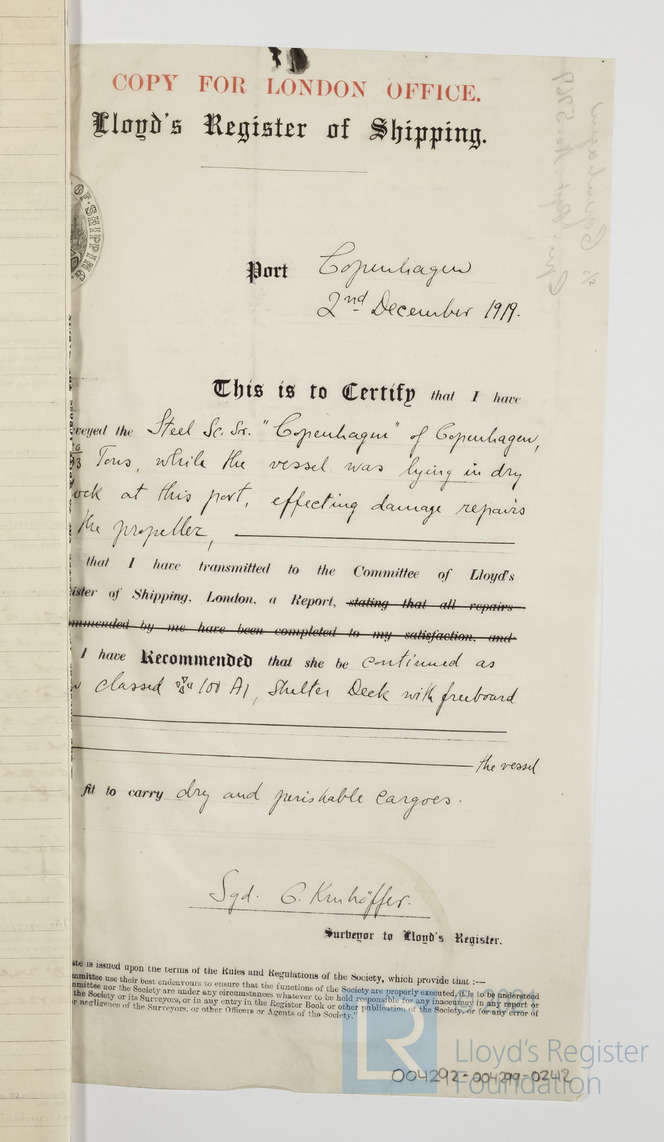 COPY FOR LONDON OFFICE.
Lloyd's Register of Shipping.
OF SHIPPING
Port Copenhagen
2nd December 1919.
This is to Certify that I have
veyed the Steel Sc. Sr. "Copenhagen" of Copenhagen,
Tons, while the vessel was lying in dry
ock at this port, effecting damage repairs
the propeller,
that I have transmitted to the Committee of Lloyd's
ister of Shipping, London, a Report, stating that all repairs
mmended by me have been completed to my satisfaction, and
I have Recommended that she be continued as
classed 100 A1, Shelter Deck with freeboard
the vessel
fit to carry dry and perishable cargoes.
Sgd. C. Kruhöffer.
Surveyor to Lloyd's Register.
ate is issued upon the terms of the Rules and Regulations of the Society, which provide that :—
mmittee use their best endeavours to ensure that the functions of the Society are properly executed, it is to be understood
mmittee nor the Society are under any circumstances whatever to be held responsible for any inaccuracy in any report or
the Society or its Surveyors, or in any entry in the Register Book or other publication of the Society, or for any error of
r negligence of the Surveyors, or other Officers or Agents of the Society."
© 2021
Lloyd's Register
Foundation
004292-004299-0242